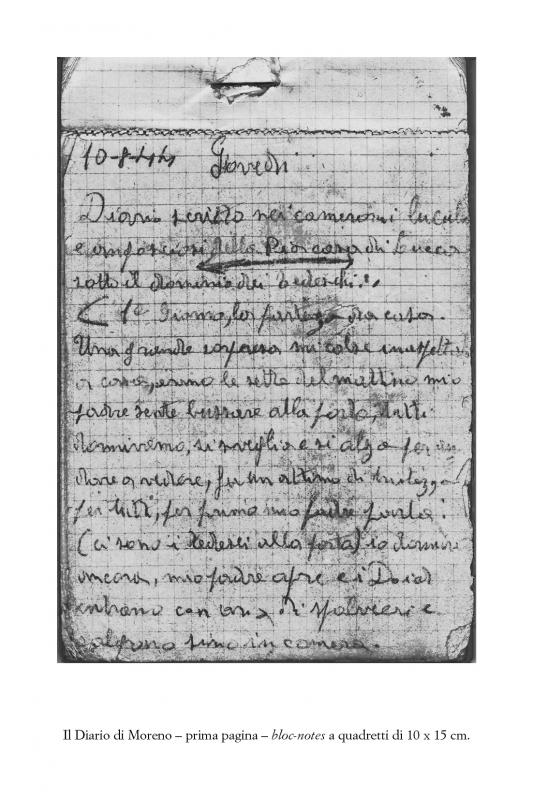 10-8-44 Giovedì
Diario scritto nei cameroni luculi
e della Pia casa di Lucca
sotto il dominio dei tedeschi.
1° Giorno, la partenza da casa.
Una grande sorpresa mi colse
a casa, erano le sette del mattino mio
padre sente bussare alla porta, tutti
dormivamo, si sveglia e si alza per an
dare a vedere, fu un attimo di tristezza
per tutti, per primo mio padre parla:
(ci sono i tedesci alla porta) io dormivo
ancora, mio padre apre e i
entrano con aria di e
salgono sino in camera.
Il Diario di Moreno – prima pagina – bloc-notes a quadretti di 10 x 15 cm.